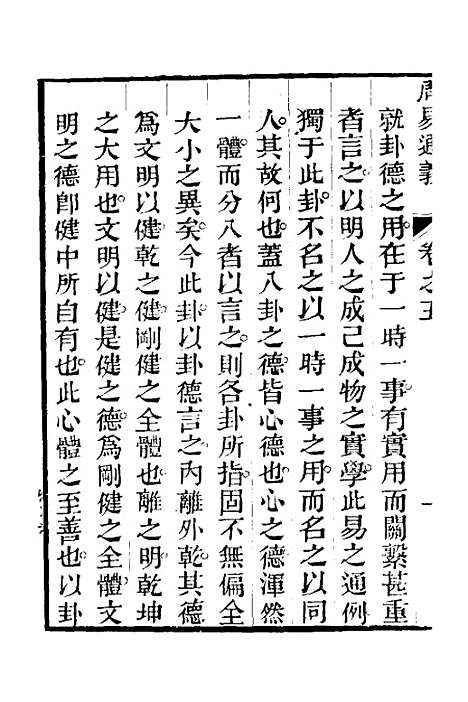 周易通義 卷之五 一
就卦德之用在于一時一事有實用而關繫甚重
者言之以明人之成己成物之實學此易之通例
獨于此卦不名之以一時一事之用而名之以同
人其故何也蓋八卦之德皆心德也心之德渾然
一體而分八者以言之則各卦所指固不無偏全
大小之異矣今此卦以卦德言之內離外乾其德
爲文明以健乾之健剛健之全體也離之明乾坤
之大用也文明以健是健之德爲剛健之全體文
明之德卽健中所自有也此心體之至善也以卦